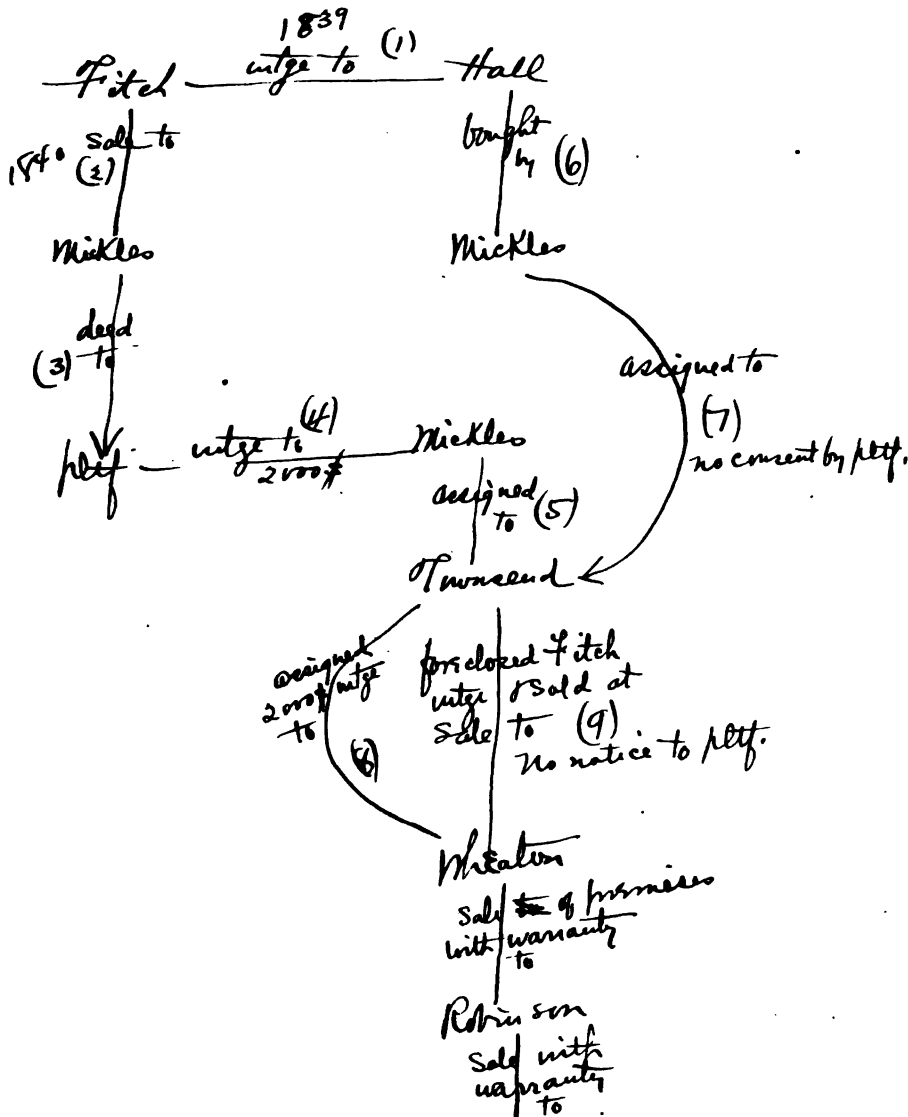 1839
mtge to (1)
Fitch
Hall
sale to
1840 (2)
bought
by (6)
Mickles
Mickles
deed
(3) to
assigned to
(7)
no consent by pltf.
pltf
mtge to (4)
2000#
Mickles
assigned
to (5)
Townsend
assigned
2000# mtge
to
(8)
foreclosed Fitch
mtge & sold at
sale to (9)
no notice to pltf.
Wheaton
sale of premises
with warranty
to
Robinson
Sale with
warranty
to